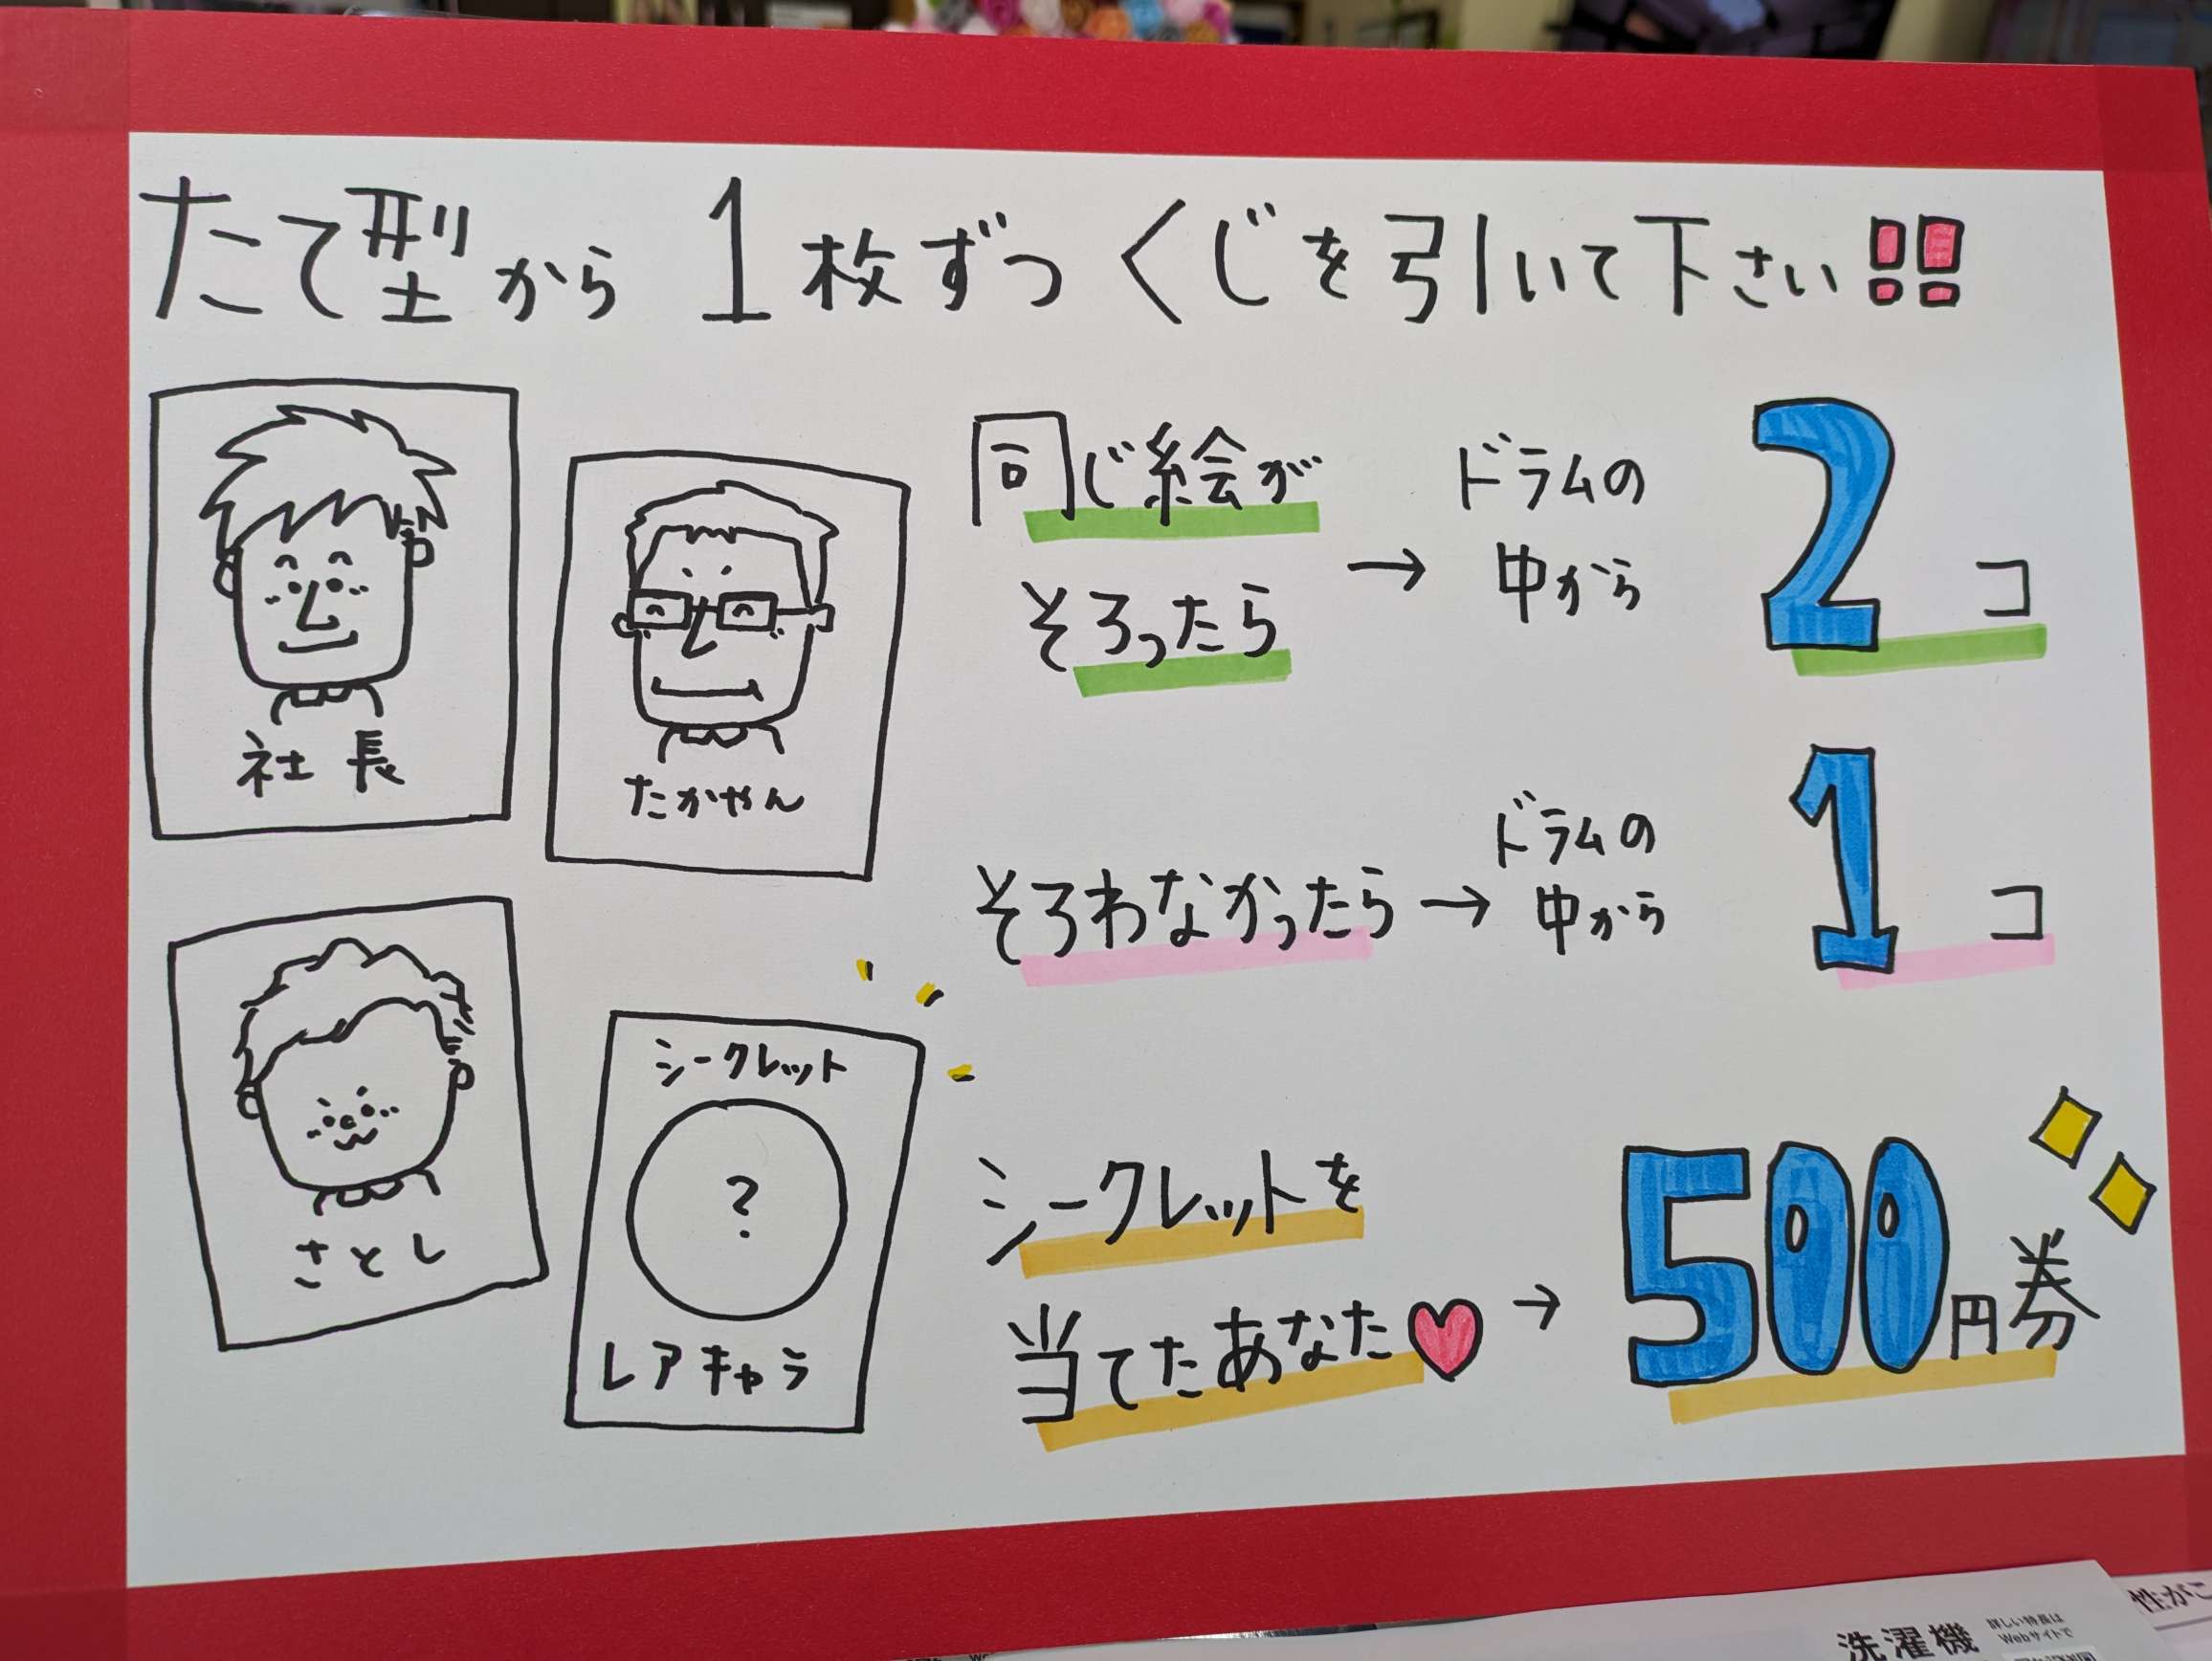 たて型から 1枚ずつ くじを引いて下さい!!
社長
たかやん
さとし
シークレット
?
レアキャラ
同じ絵が
そろったら
→
ドラムの
中から
2コ
そろわなかったら→
ドラムの
中から
1コ
シークレットを
当てたあなた♥→
500円券
性がこ
洗濯機
詳しい特長は
Webサイトで